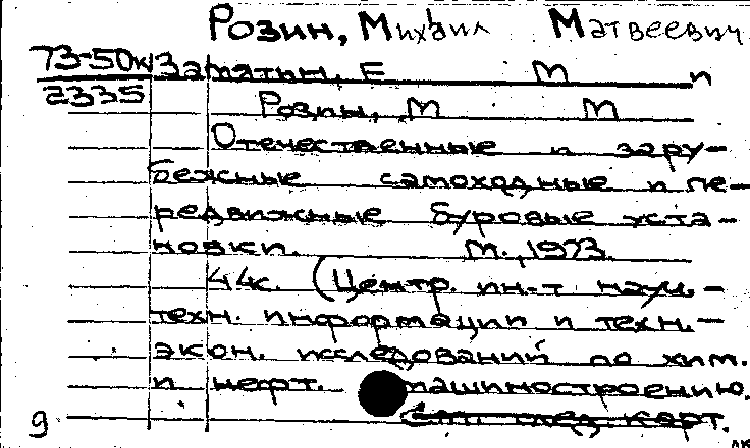 Розин, Михаил Матвеевич
73-50к Замятын, Е М и
2335 Розины, М М
Отечественные и зару-
бежные самоходные и пе-
редвижные буровые уста-
новки. М., 1973.
44с. (Центр. ин-т науч.-
техн. информации и техн.-
экон. исследований по хим.
и нефт. машиностроению.
См. след. карт.
9